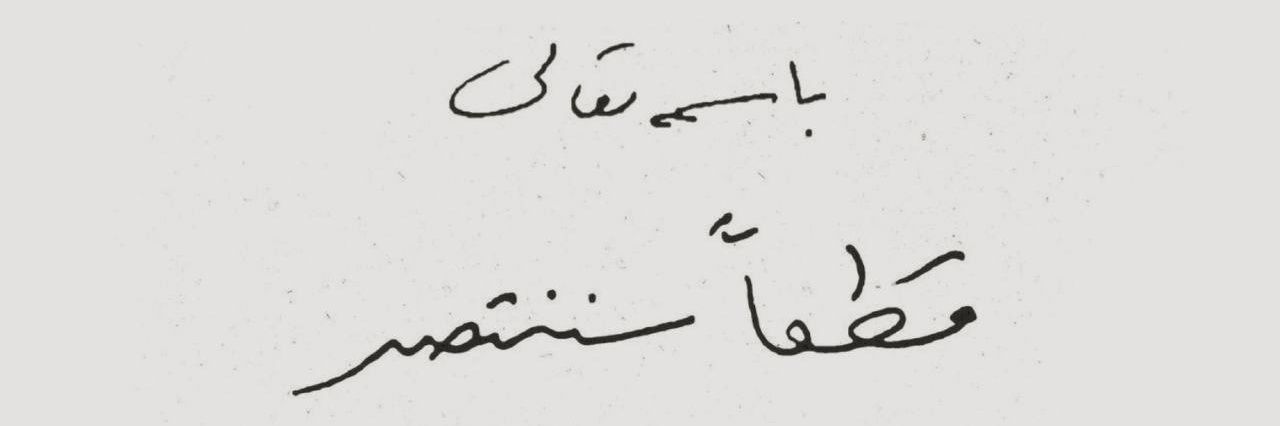 باسمه تعالى
قطعاً سننتصر